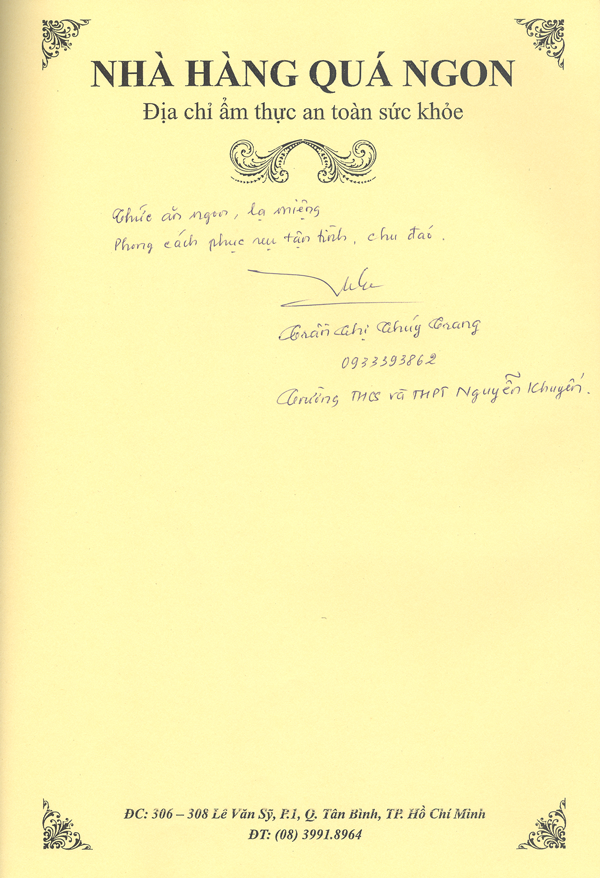 NHÀ HÀNG QUÁ NGON
Địa chỉ ẩm thực an toàn sức khỏe
Thức ăn ngon, lạ miệng
Phong cách phục vụ tận tình, chu đáo.
Trần Thị Thúy Trang
0933393862
Trường THCS và THPT Nguyễn Khuyến.
ĐC: 306 – 308 Lê Văn Sỹ, P.1, Q. Tân Bình, TP. Hồ Chí Minh
ĐT: (08) 3991.8964